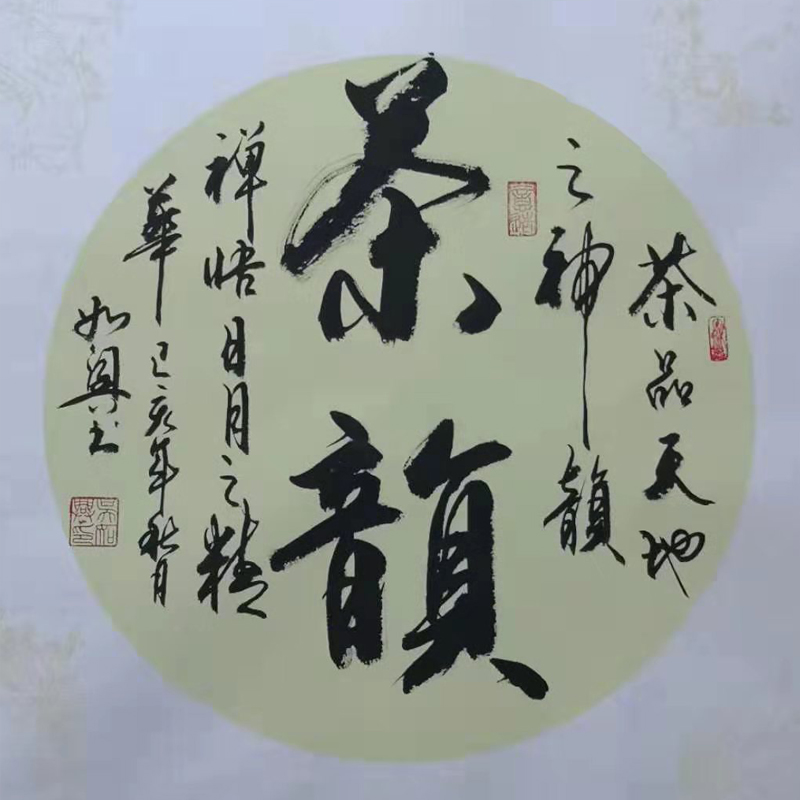 茶品天地
之神韻
茶韻
禅悟日月之精
華
己亥年秋月
如興书